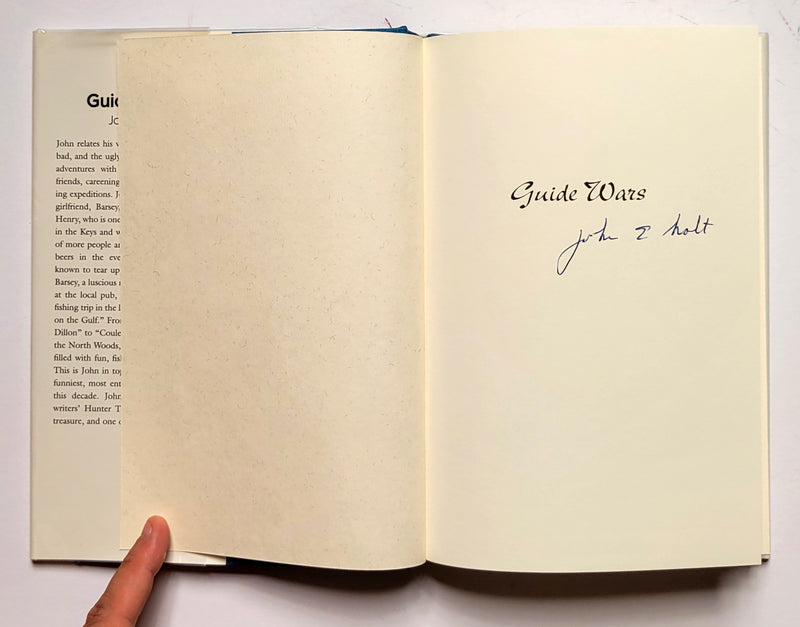 Guid
Jo
John relates his
bad, and the ugly
adventures with
friends, careening
ing expeditions. J
girlfriend, Barsey,
Henry, who is one
in the Keys and w
of more people a
beers in the eve
known to tear up
Barsey, a luscious
at the local pub,
fishing trip in the l
on the Gulf.” Fro
Dillon” to “Coule
the North Woods,
filled with fun, fis
This is John in to
funniest, most ent
this decade. John
writers’ Hunter T
treasure, and one
Guide Wars
John E Holt